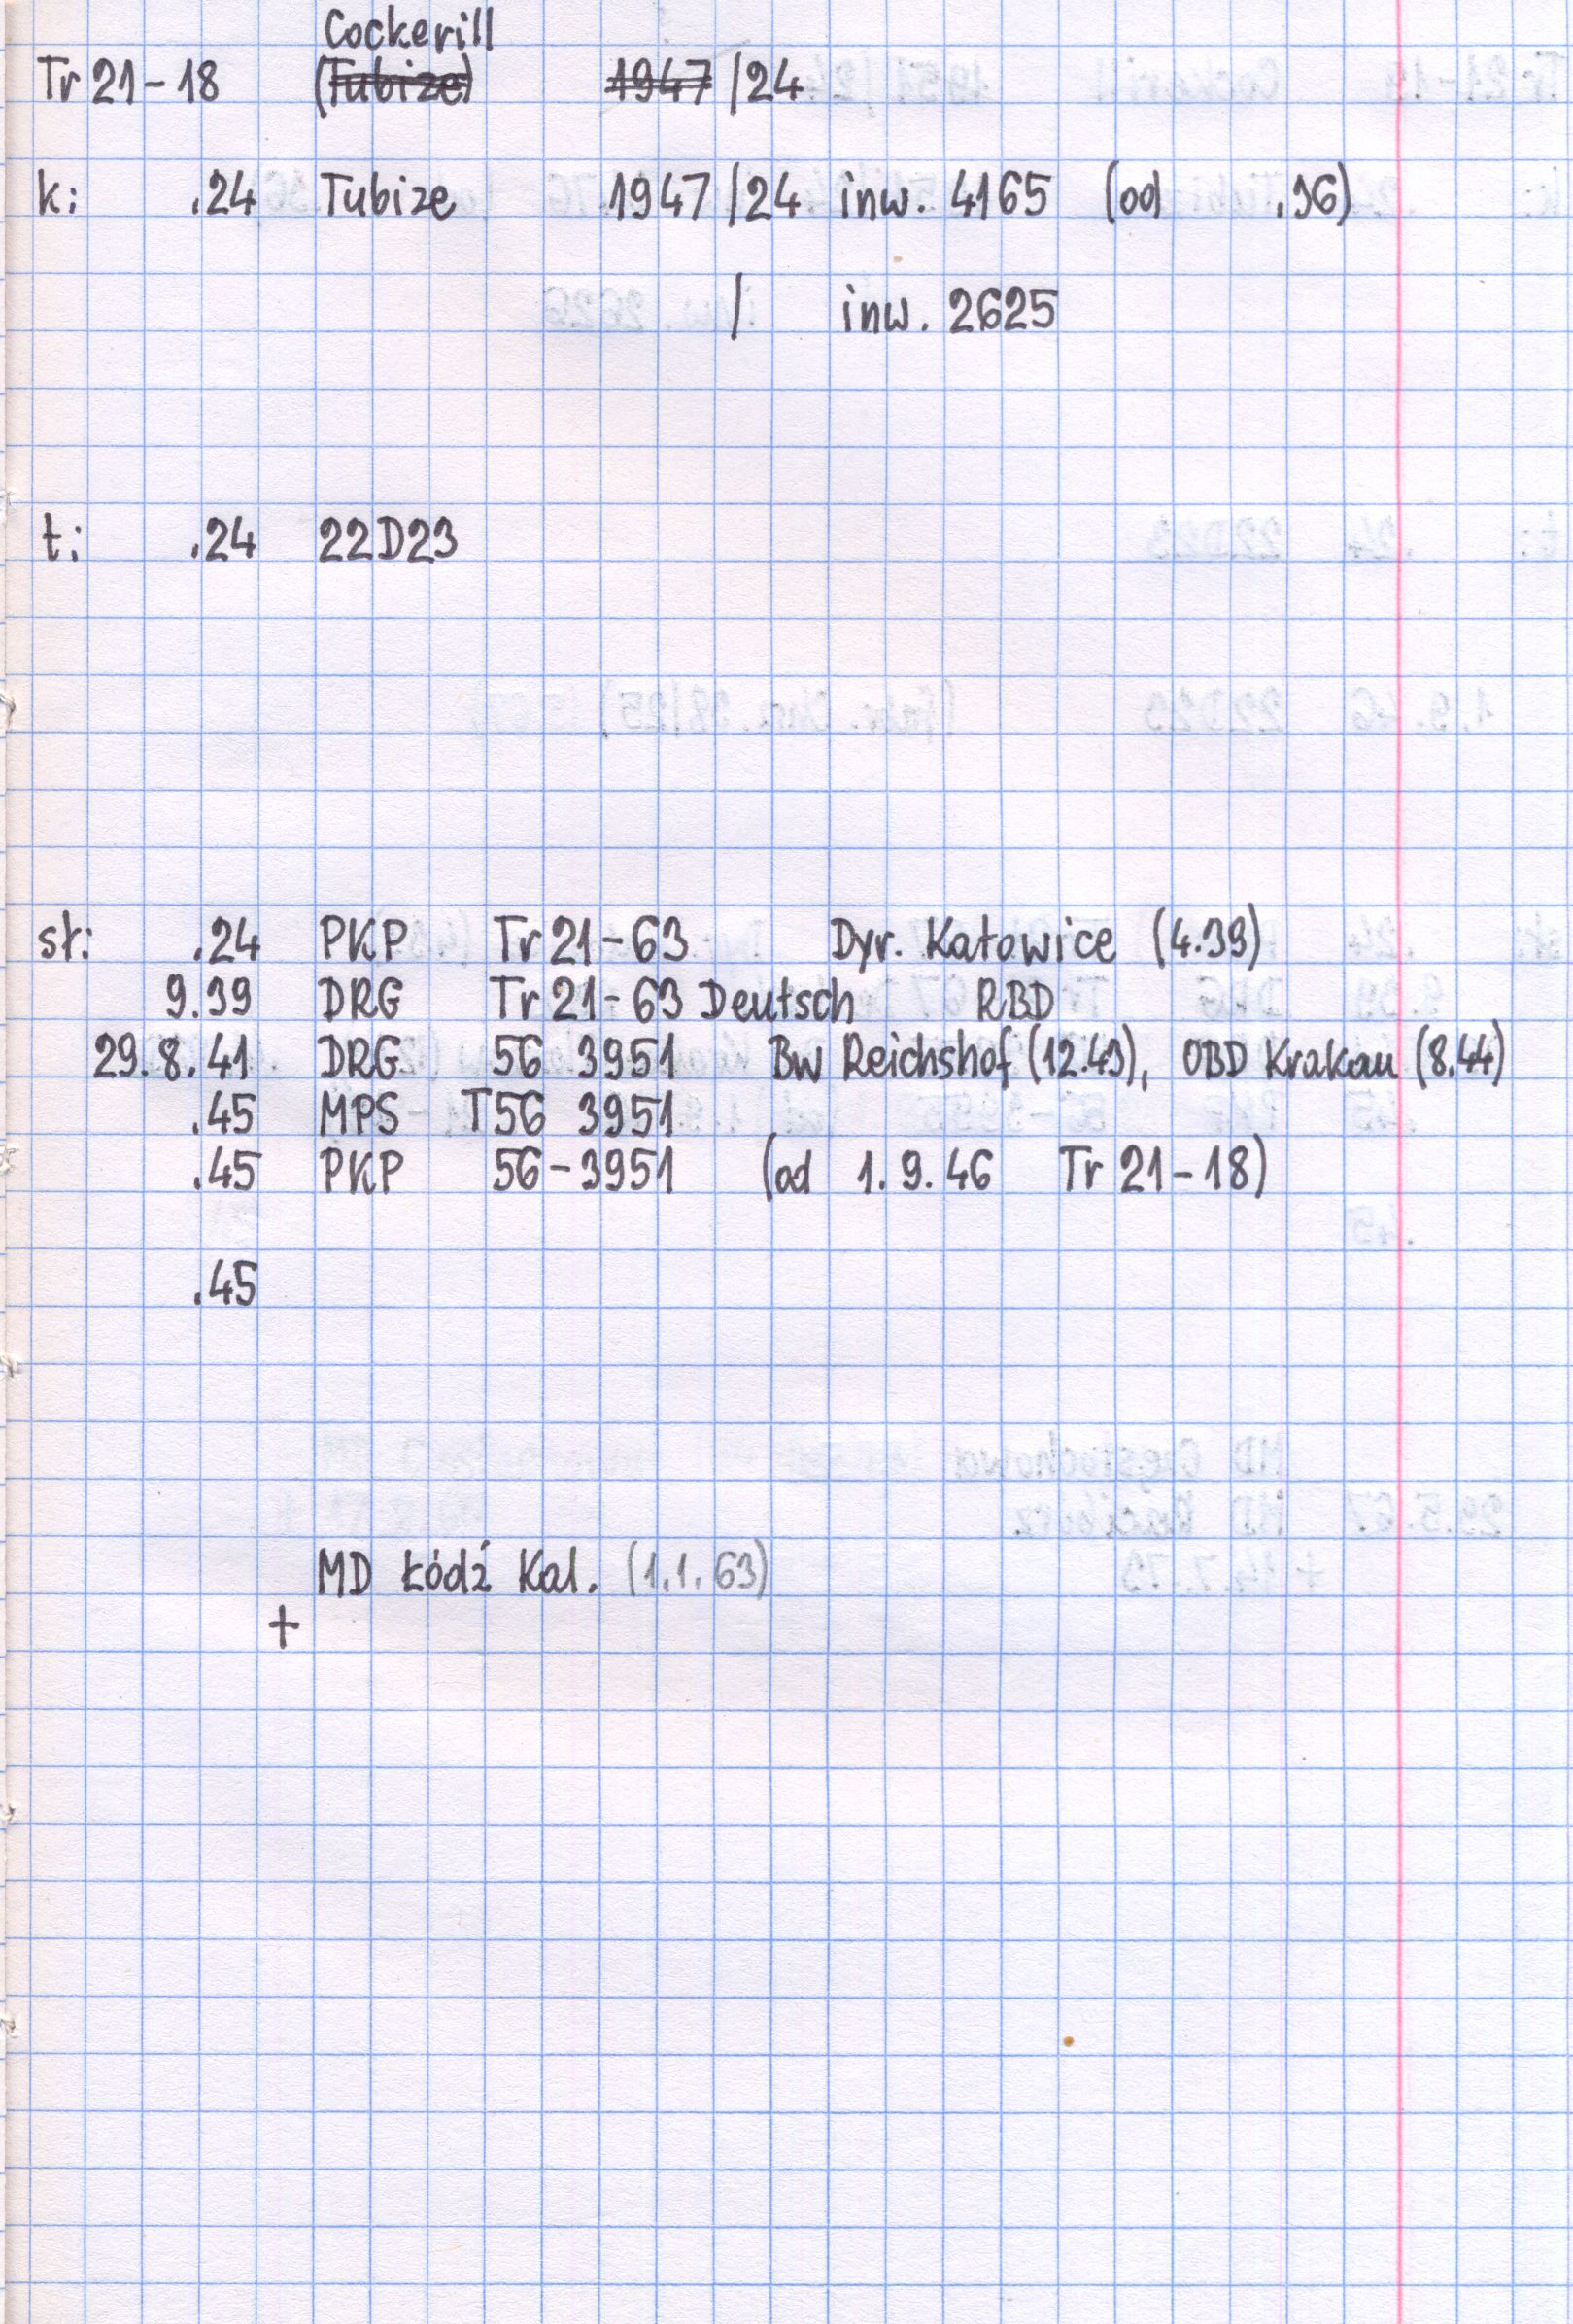 Cockerill
Tr 21-18 (Tubize) 1947 /24
k: .24 Tubize 1947 /24 inw. 4165 (od .36)
/ inw. 2625
t: .24 22D23
st: .24 PKP Tr 21-63 Dyr. Katowice (4.39)
9.39 DRG Tr 21-63 Deutsch RBD
29.8.41 DRG 56 3951 Bw Reichshof (12.43), OBD Krakau (8.44)
.45 MPS T56 3951
.45 PKP 56-3951 (od 1.9.46 Tr 21-18)
.45
MD Łódź Kal. (1.1.63)
+